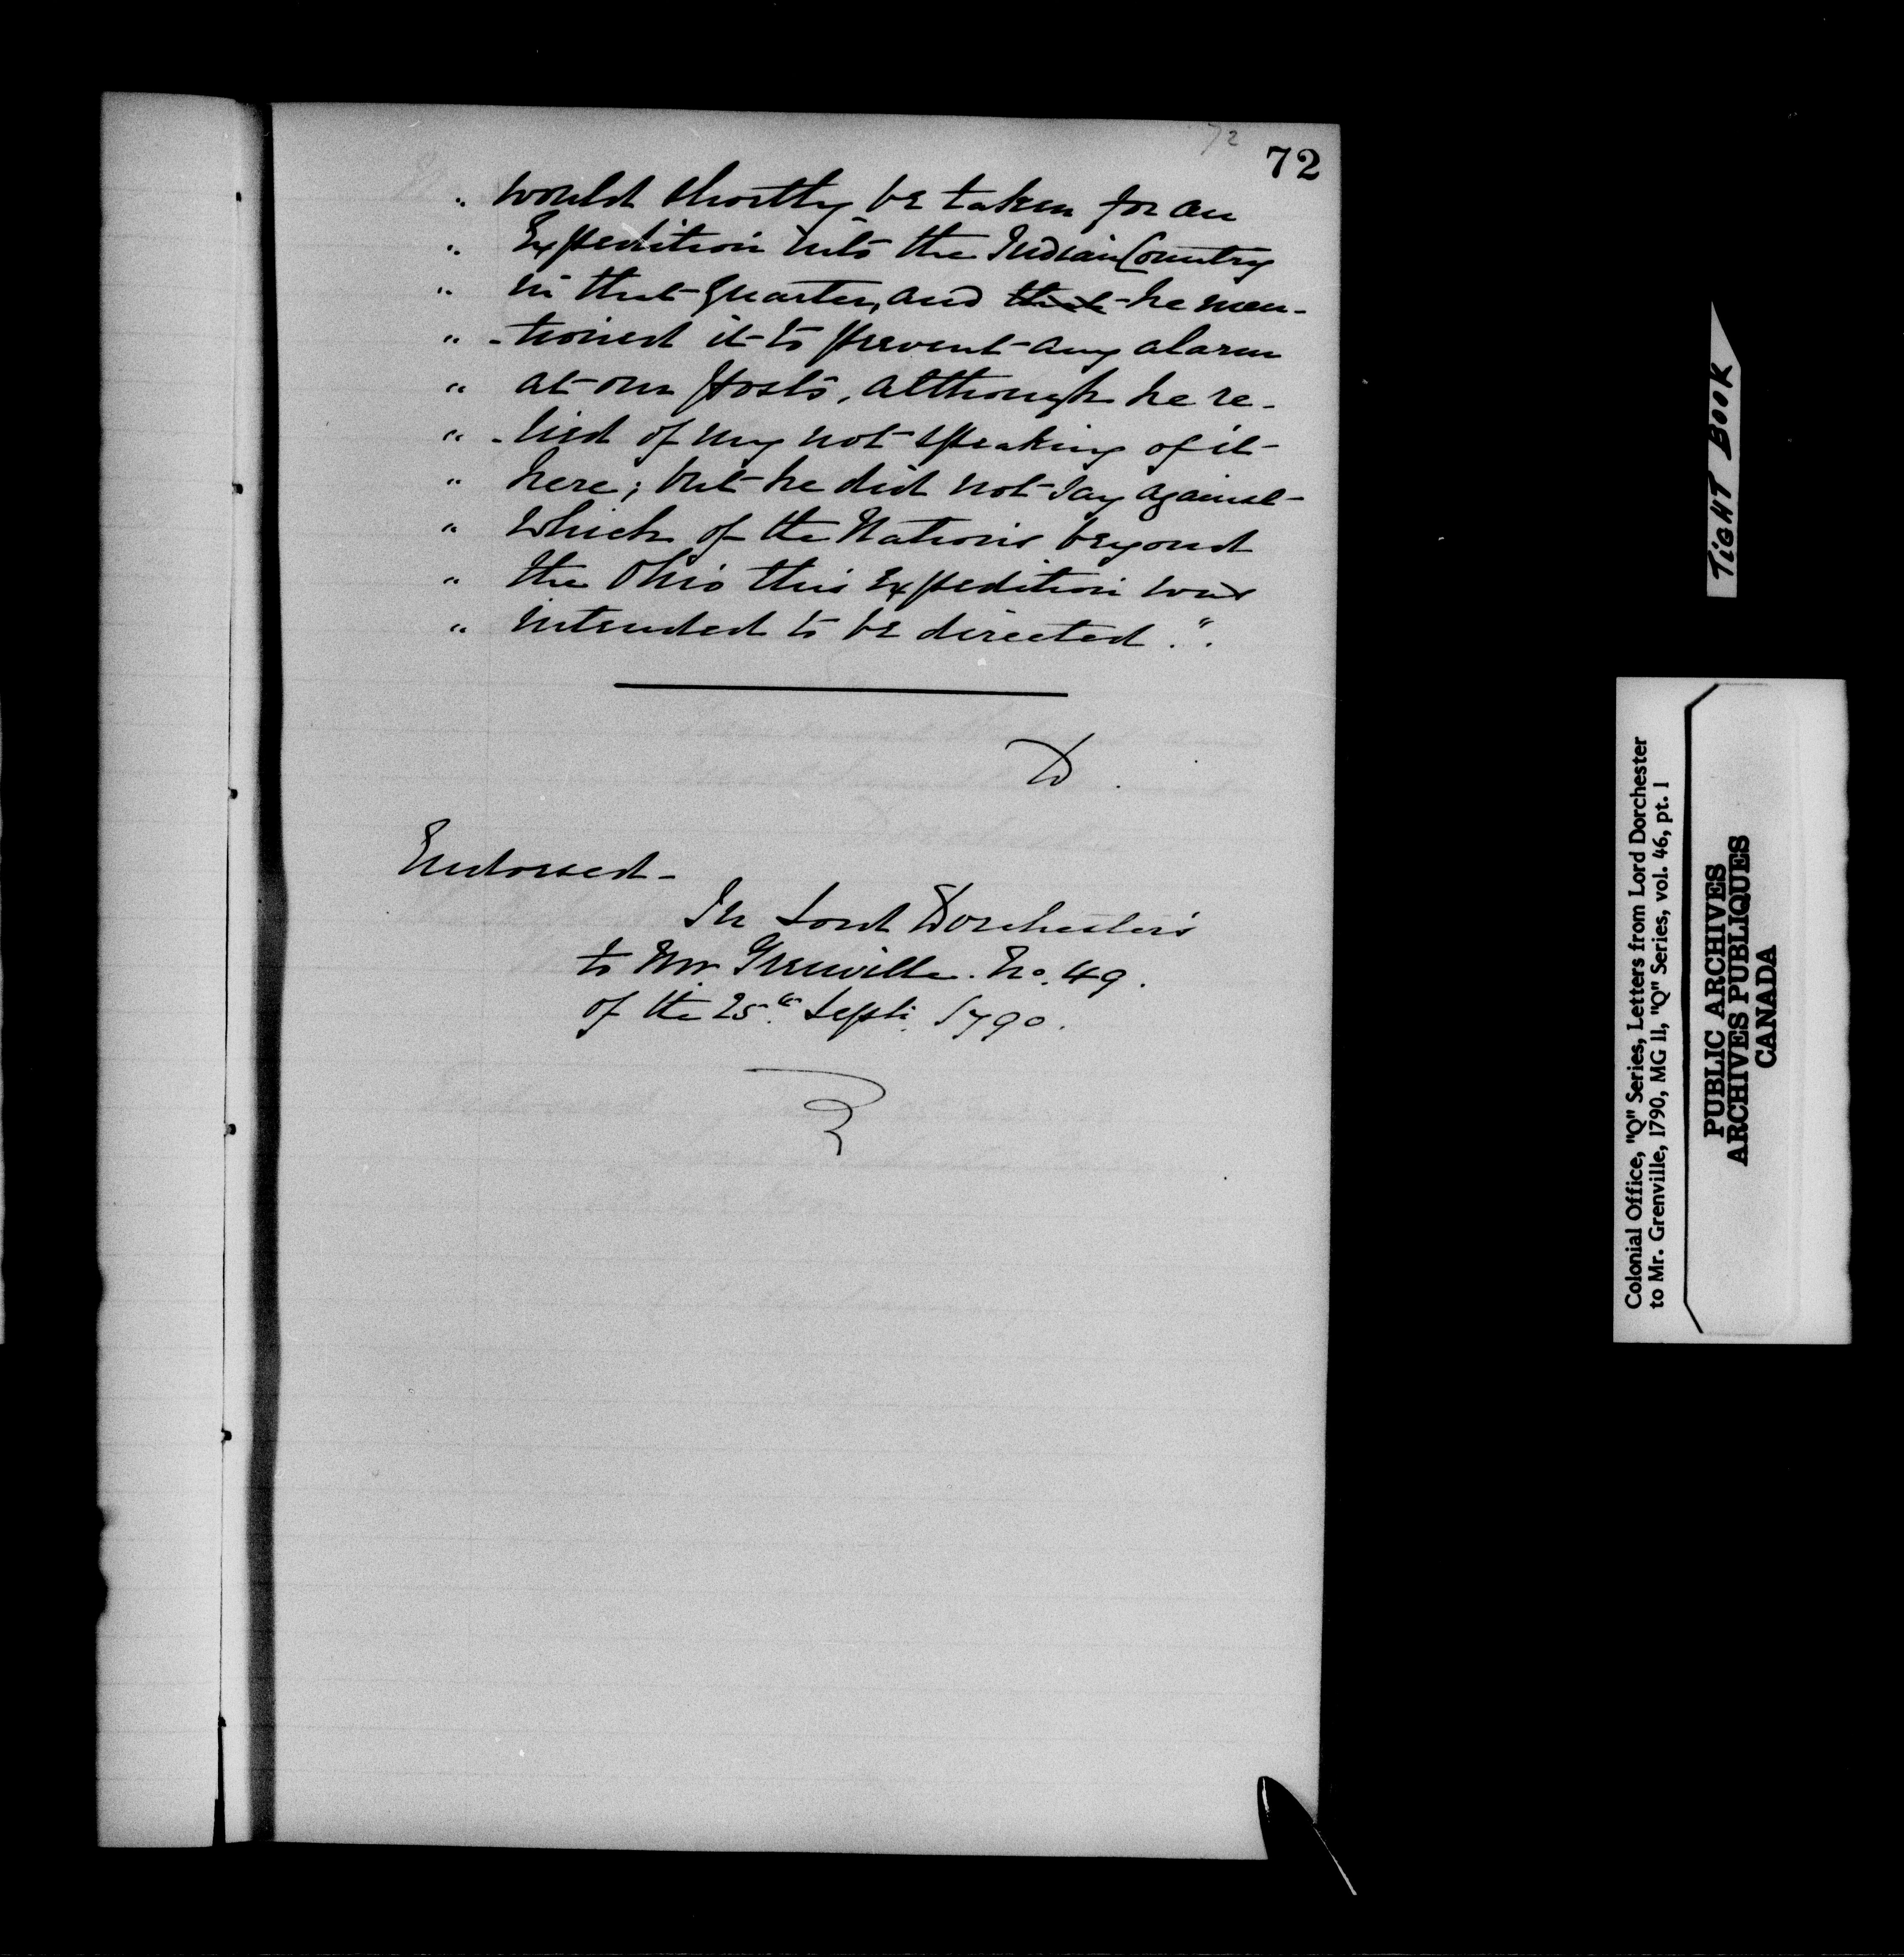 72
72
" would shortly be taken for an
" Expedition into the Indian Country
" in that quarter, and that he men-
" -tioned it to prevent any alarm
" at our posts, although he re-
" -lied of my not speaking of it
" here; but he did not say against
" which of the Nations beyond
" the Ohio this expedition was
" intended to be directed."
D.
Endorsed -
In Lord Dorchester's
to Mr Grenville. No. 49.
of the 25th Septr. 1790.
TIGHT BOOK
Colonial Office, "Q" Series, Letters from Lord Dorchester
to Mr. Grenville, 1790, MG 11, "Q" Series, vol. 46, pt. 1
PUBLIC ARCHIVES
ARCHIVES PUBLIQUES
CANADA